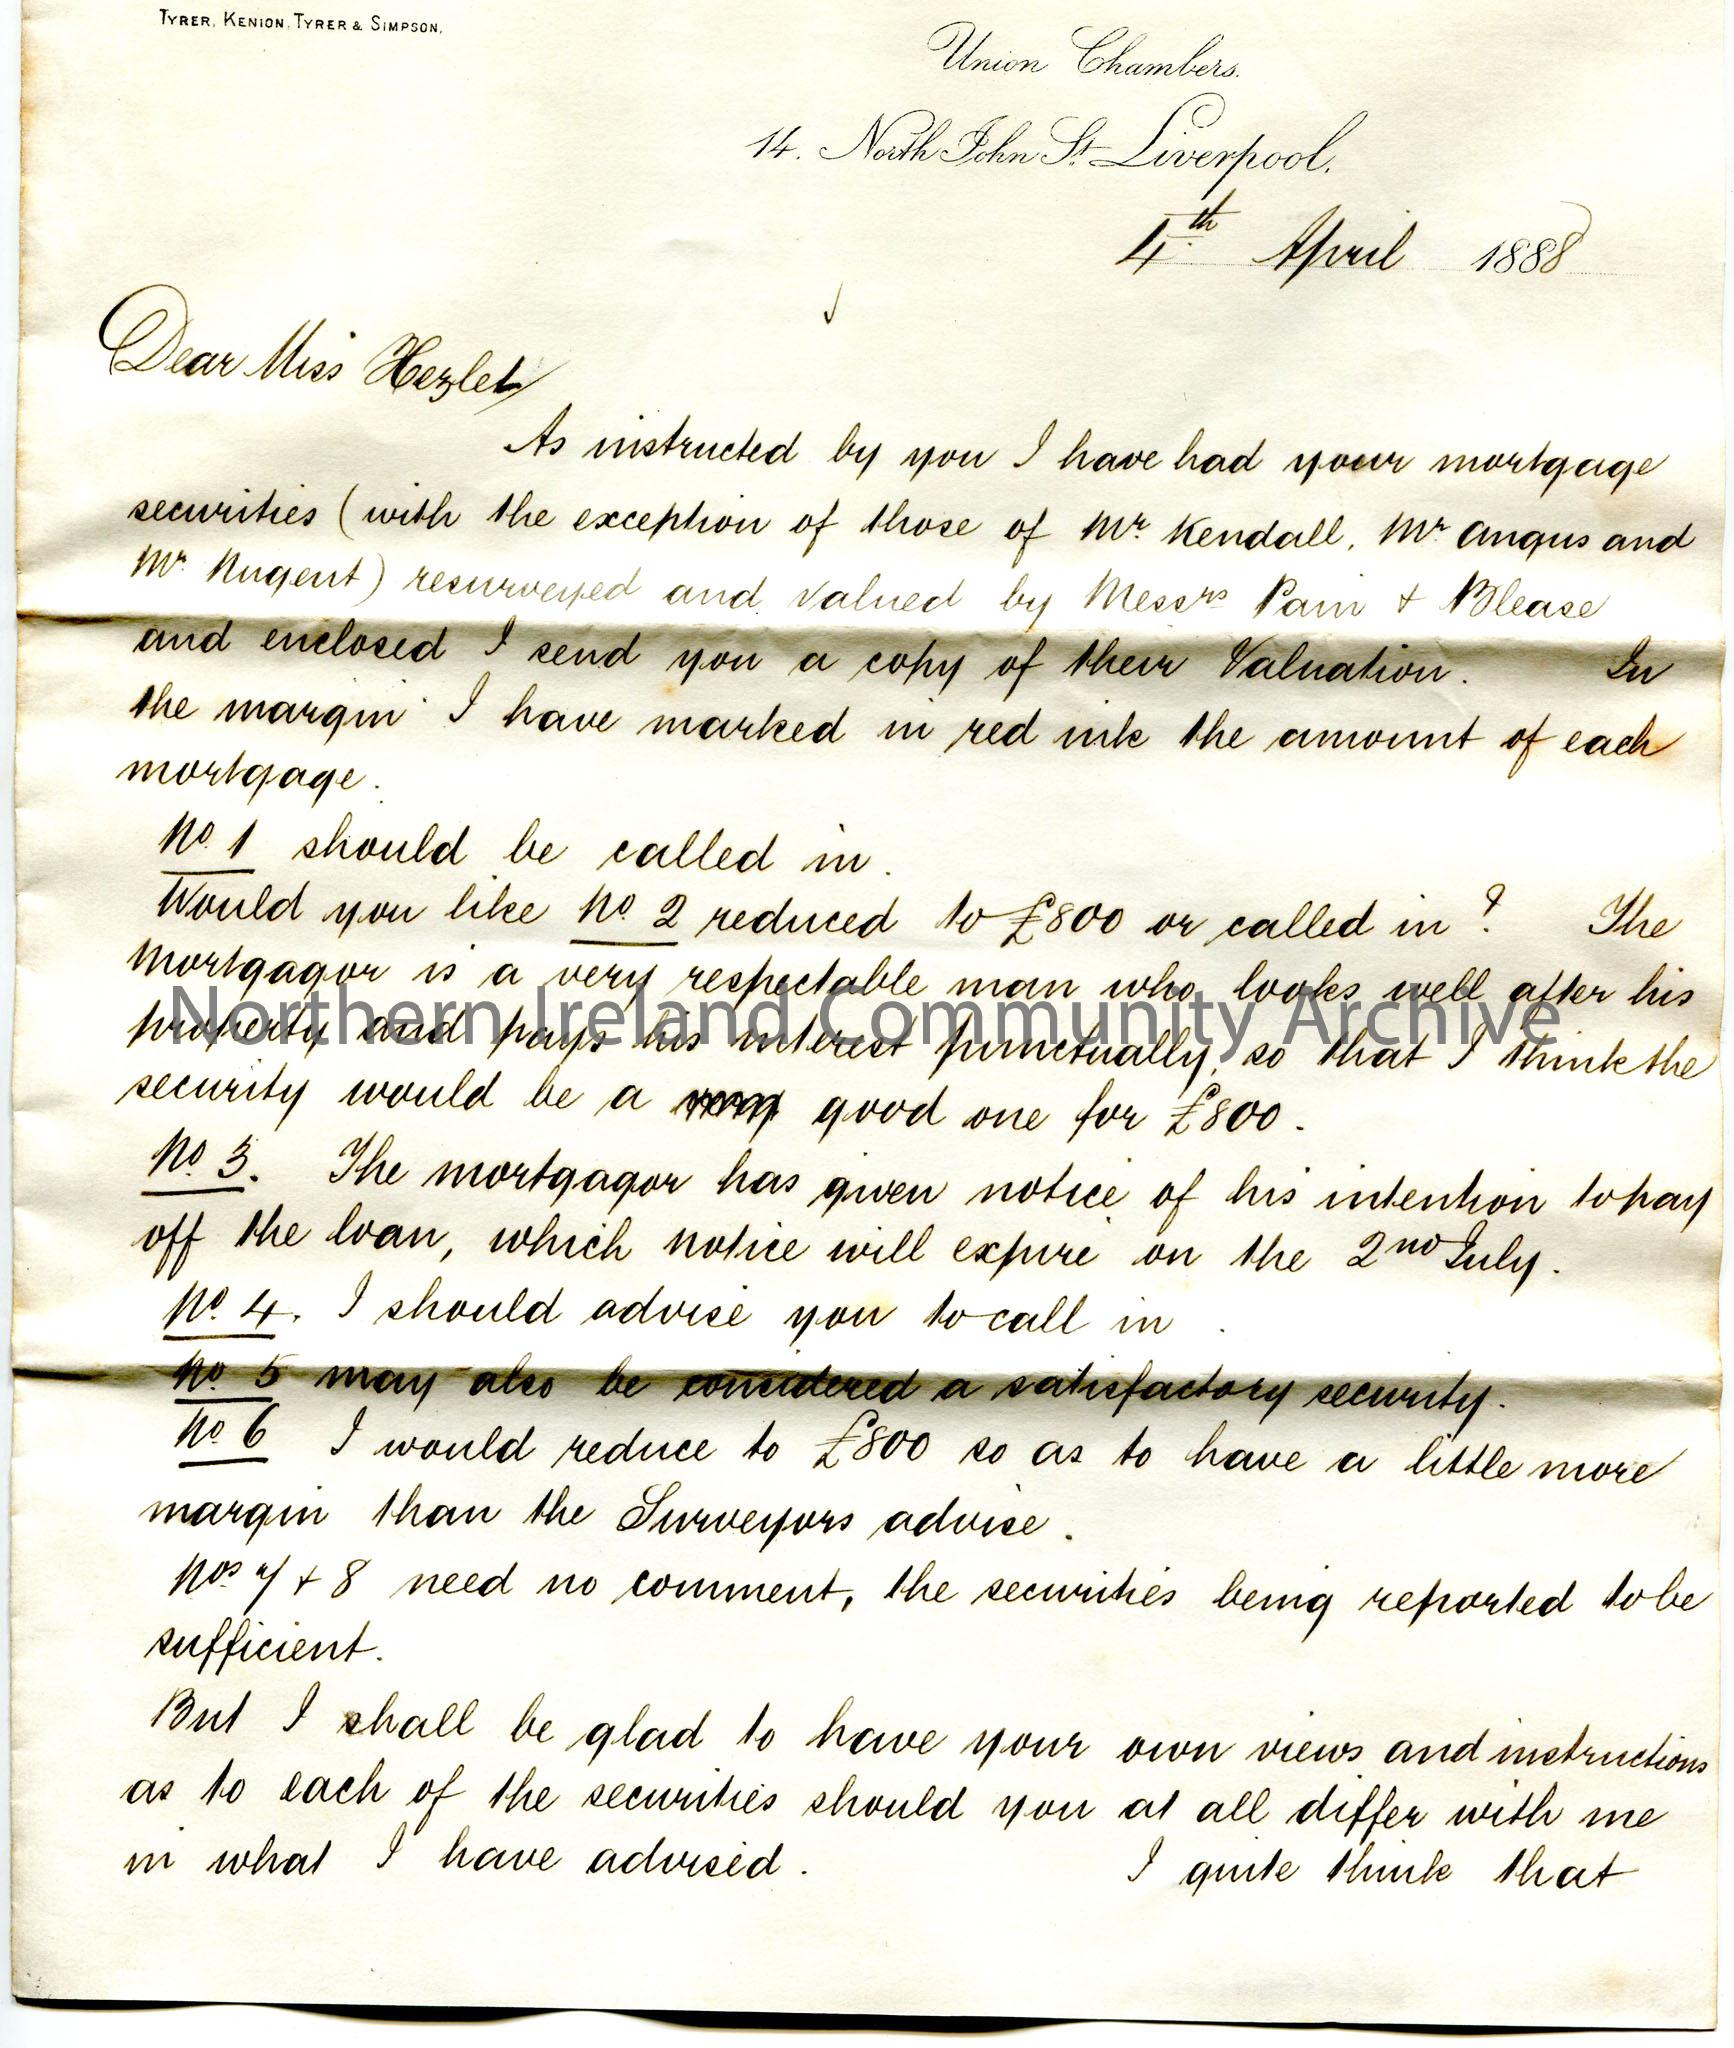 TYRER, KENION, TYRER & SIMPSON.
Union Chambers.
14. North John St. Liverpool.
4th April 1888
Dear Miss Hezlet
As instructed by you I have had your mortgage
securities (with the exception of those of Mr. Kendall, Mr Angus and
Mr. Nugent) resurveyed and valued by Messrs Pain & Blease
and enclosed I send you a copy of their Valuation. In
the margin I have marked in red ink the amount of each
mortgage.
No. 1 should be called in.
Would you like No. 2 reduced to £800 or called in? The
Mortgagor is a very respectable man who looks well after his
Northern Ireland Community Archive
property and pays his interest punctually, so that I think the
security would be a very good one for £800.
No. 3. The mortgagor has given notice of his intention to pay
off the loan, which notice will expire on the 2nd July.
No. 4. I should advise you to call in.
No. 5 may also be considered a satisfactory security.
No. 6 I would reduce to £800 so as to have a little more
margin than the Surveyors advise.
Nos. 7 & 8 need no comment, the securities being reported to be
sufficient.
But I shall be glad to have your own views and instructions
as to each of the securities should you at all differ with me
in what I have advised. I quite think that